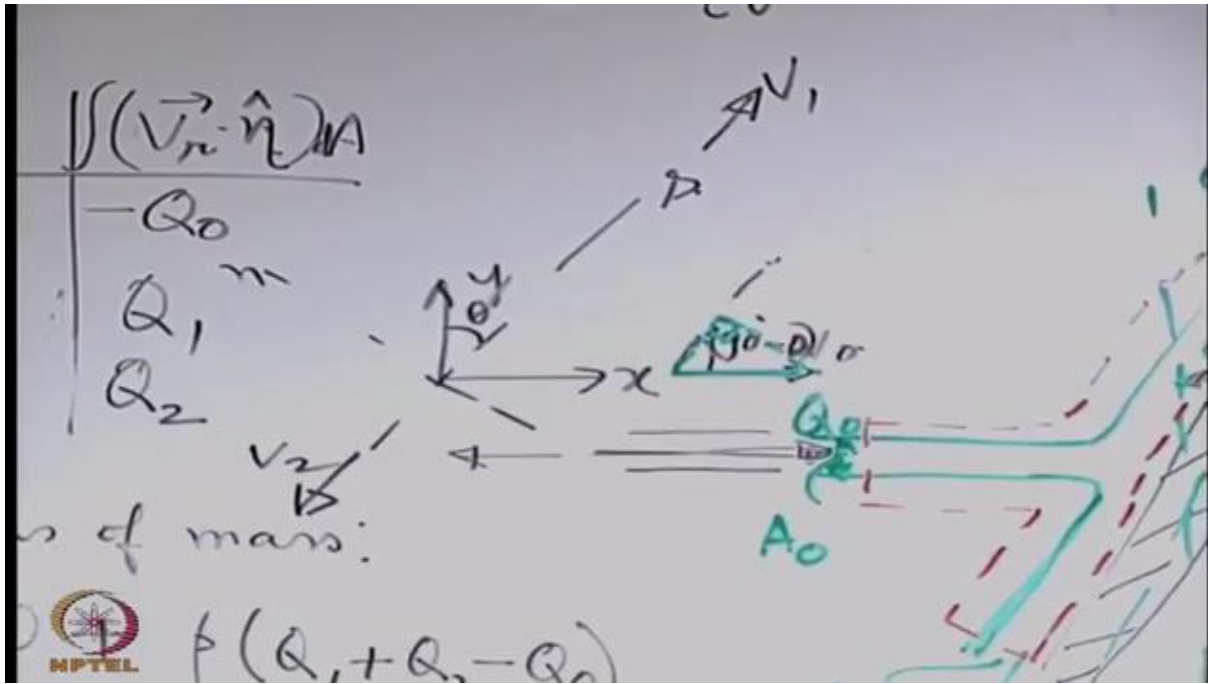 CV
∬(V⃗r·n̂)dA
-Q0
Q1
Q2
V1
1
y
θ
x
Q0
V2
A0
s of mass:
ρ(Q1+Q2-Q0)
NPTEL